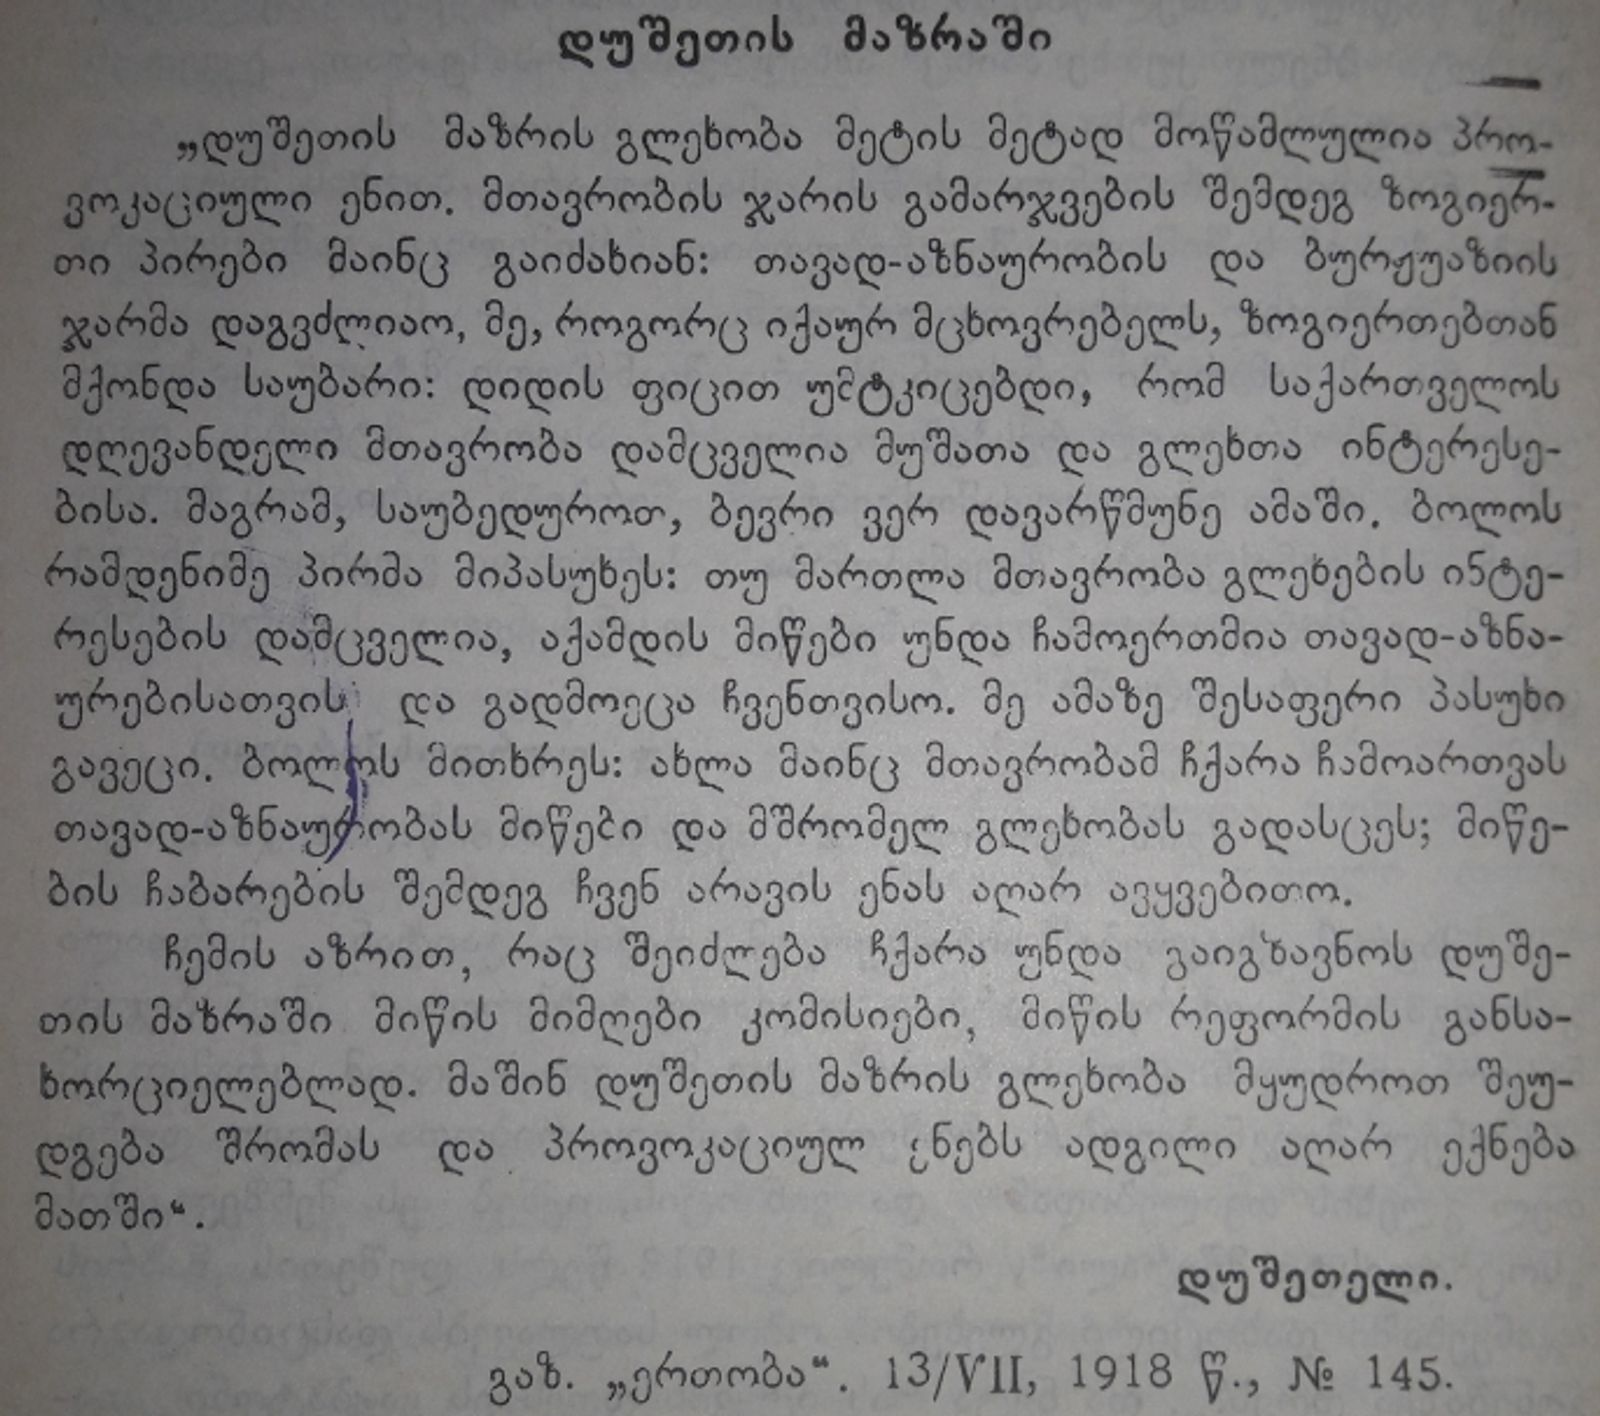 დუშეთის მაზრაში
„დუშეთის მაზრის გლეხობა მეტის მეტად მოწამლულია პრო-
ვოკაციული ენით. მთავრობის ჯარის გამარჯვების შემდეგ ზოგიერ-
თი პირები მაინც გაიძახიან: თავად-აზნაურობის და ბურჟუაზიის
ჯარმა დაგვძლიაო, მე, როგორც იქაურ მცხოვრებელს, ზოგიერთებთან
მქონდა საუბარი: დიდის ფიცით უმტკიცებდი, რომ საქართველოს
დღევანდელი მთავრობა დამცველია მუშათა და გლეხთა ინტერესე-
ბისა. მაგრამ, საუბედუროთ, ბევრი ვერ დავარწმუნე ამაში. ბოლოს
რამდენიმე პირმა მიპასუხეს: თუ მართლა მთავრობა გლეხების ინტე-
რესების დამცველია, აქამდის მიწები უნდა ჩამოერთმია თავად-აზნა-
ურებისათვის და გადმოეცა ჩვენთვისო. მე ამაზე შესაფერი პასუხი
გავეცი. ბოლოს მითხრეს: ახლა მაინც მთავრობამ ჩქარა ჩამოართვას
თავად-აზნაურობას მიწები და მშრომელ გლეხობას გადასცეს; მიწე-
ბის ჩაბარების შემდეგ ჩვენ არავის ენას აღარ ავყვებითო.
ჩემის აზრით, რაც შეიძლება ჩქარა უნდა გაიგზავნოს დუშე-
თის მაზრაში მიწის მიმღები კომისიები, მიწის რეფორმის განსა-
ხორციელებლად. მაშინ დუშეთის მაზრის გლეხობა მყუდროთ შეუ-
დგება შრომას და პროვოკაციულ ენებს ადგილი აღარ ექნება
მათში“.
დუშეთელი.
გაზ. „ერთობა“. 13/VII, 1918 წ., № 145.